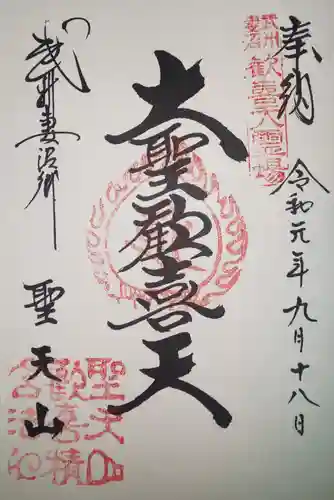 奉納
令和元年九月十八日
武州
妻沼
歓喜天霊場
大聖歓喜天
武州妻沼郷
聖天山